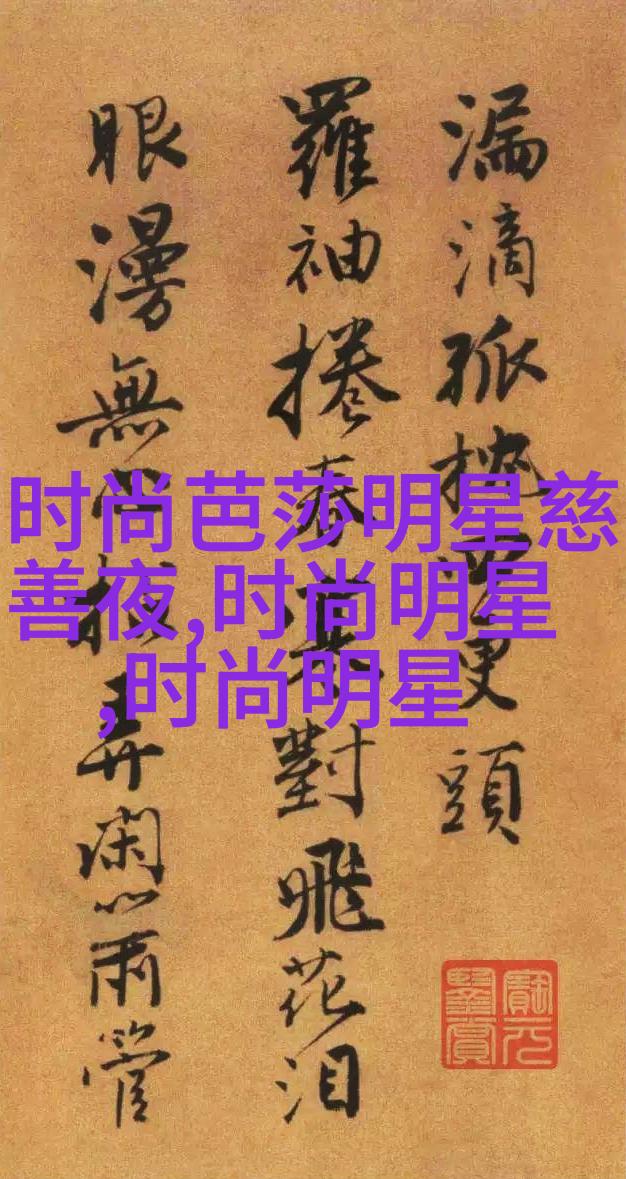 漏滴孤更頭
羅袖捲春對飛花泪
眼漫無心弄閑心管
时尚芭莎明星慈
善夜,时尚明星
,时尚明星